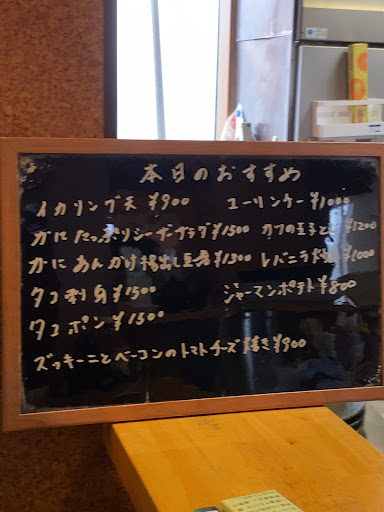 本日のおすすめ
イカリング天 ¥900 ユーリンチー ¥1000
かにたっぷりシーザーサラダ ¥1500 カツの玉とじ ¥1200
かにあんかけ揚出し豆腐 ¥1300 レバニラ炒め ¥1000
タコ刺身 ¥1500 ジャーマンポテト ¥800
タコポン ¥1500
ズッキーニとベーコンのトマトチーズ焼き ¥900